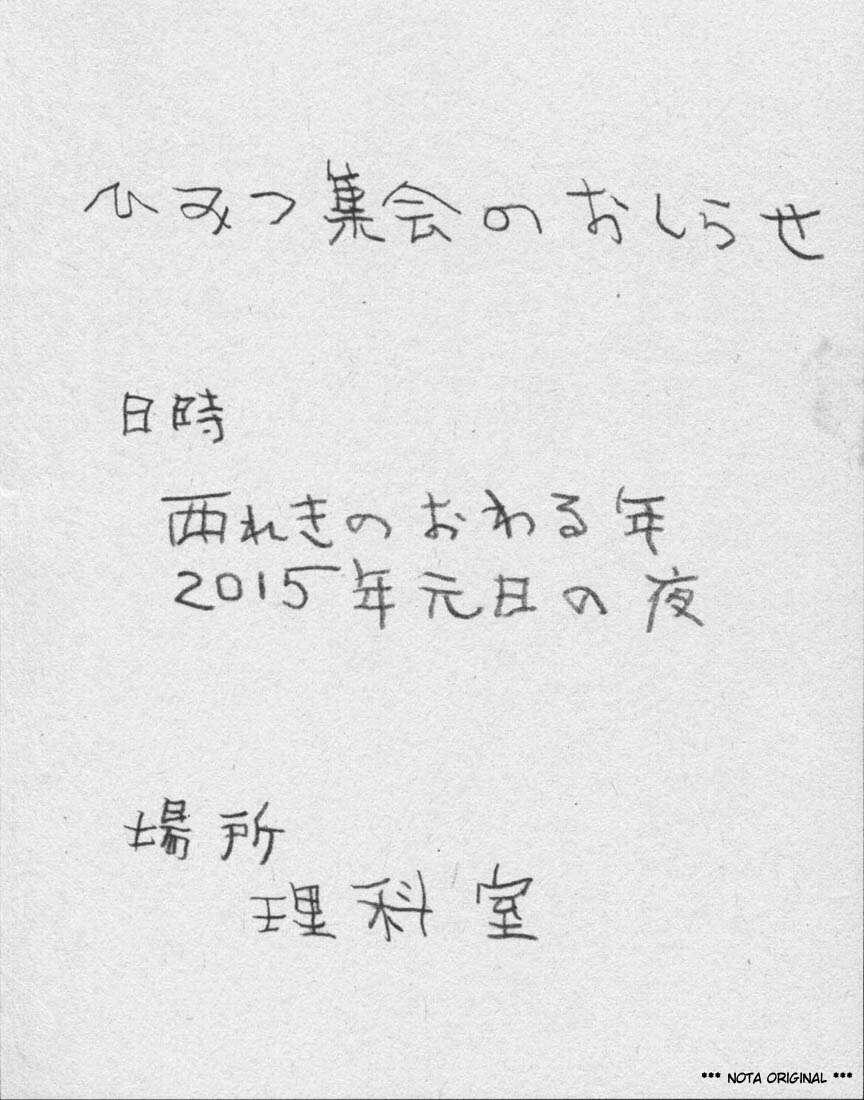 ひみつ集会のおしらせ
日時
西れきのおわる年
2015年元日の夜
場所
理科室
*** NOTA ORIGINAL ***